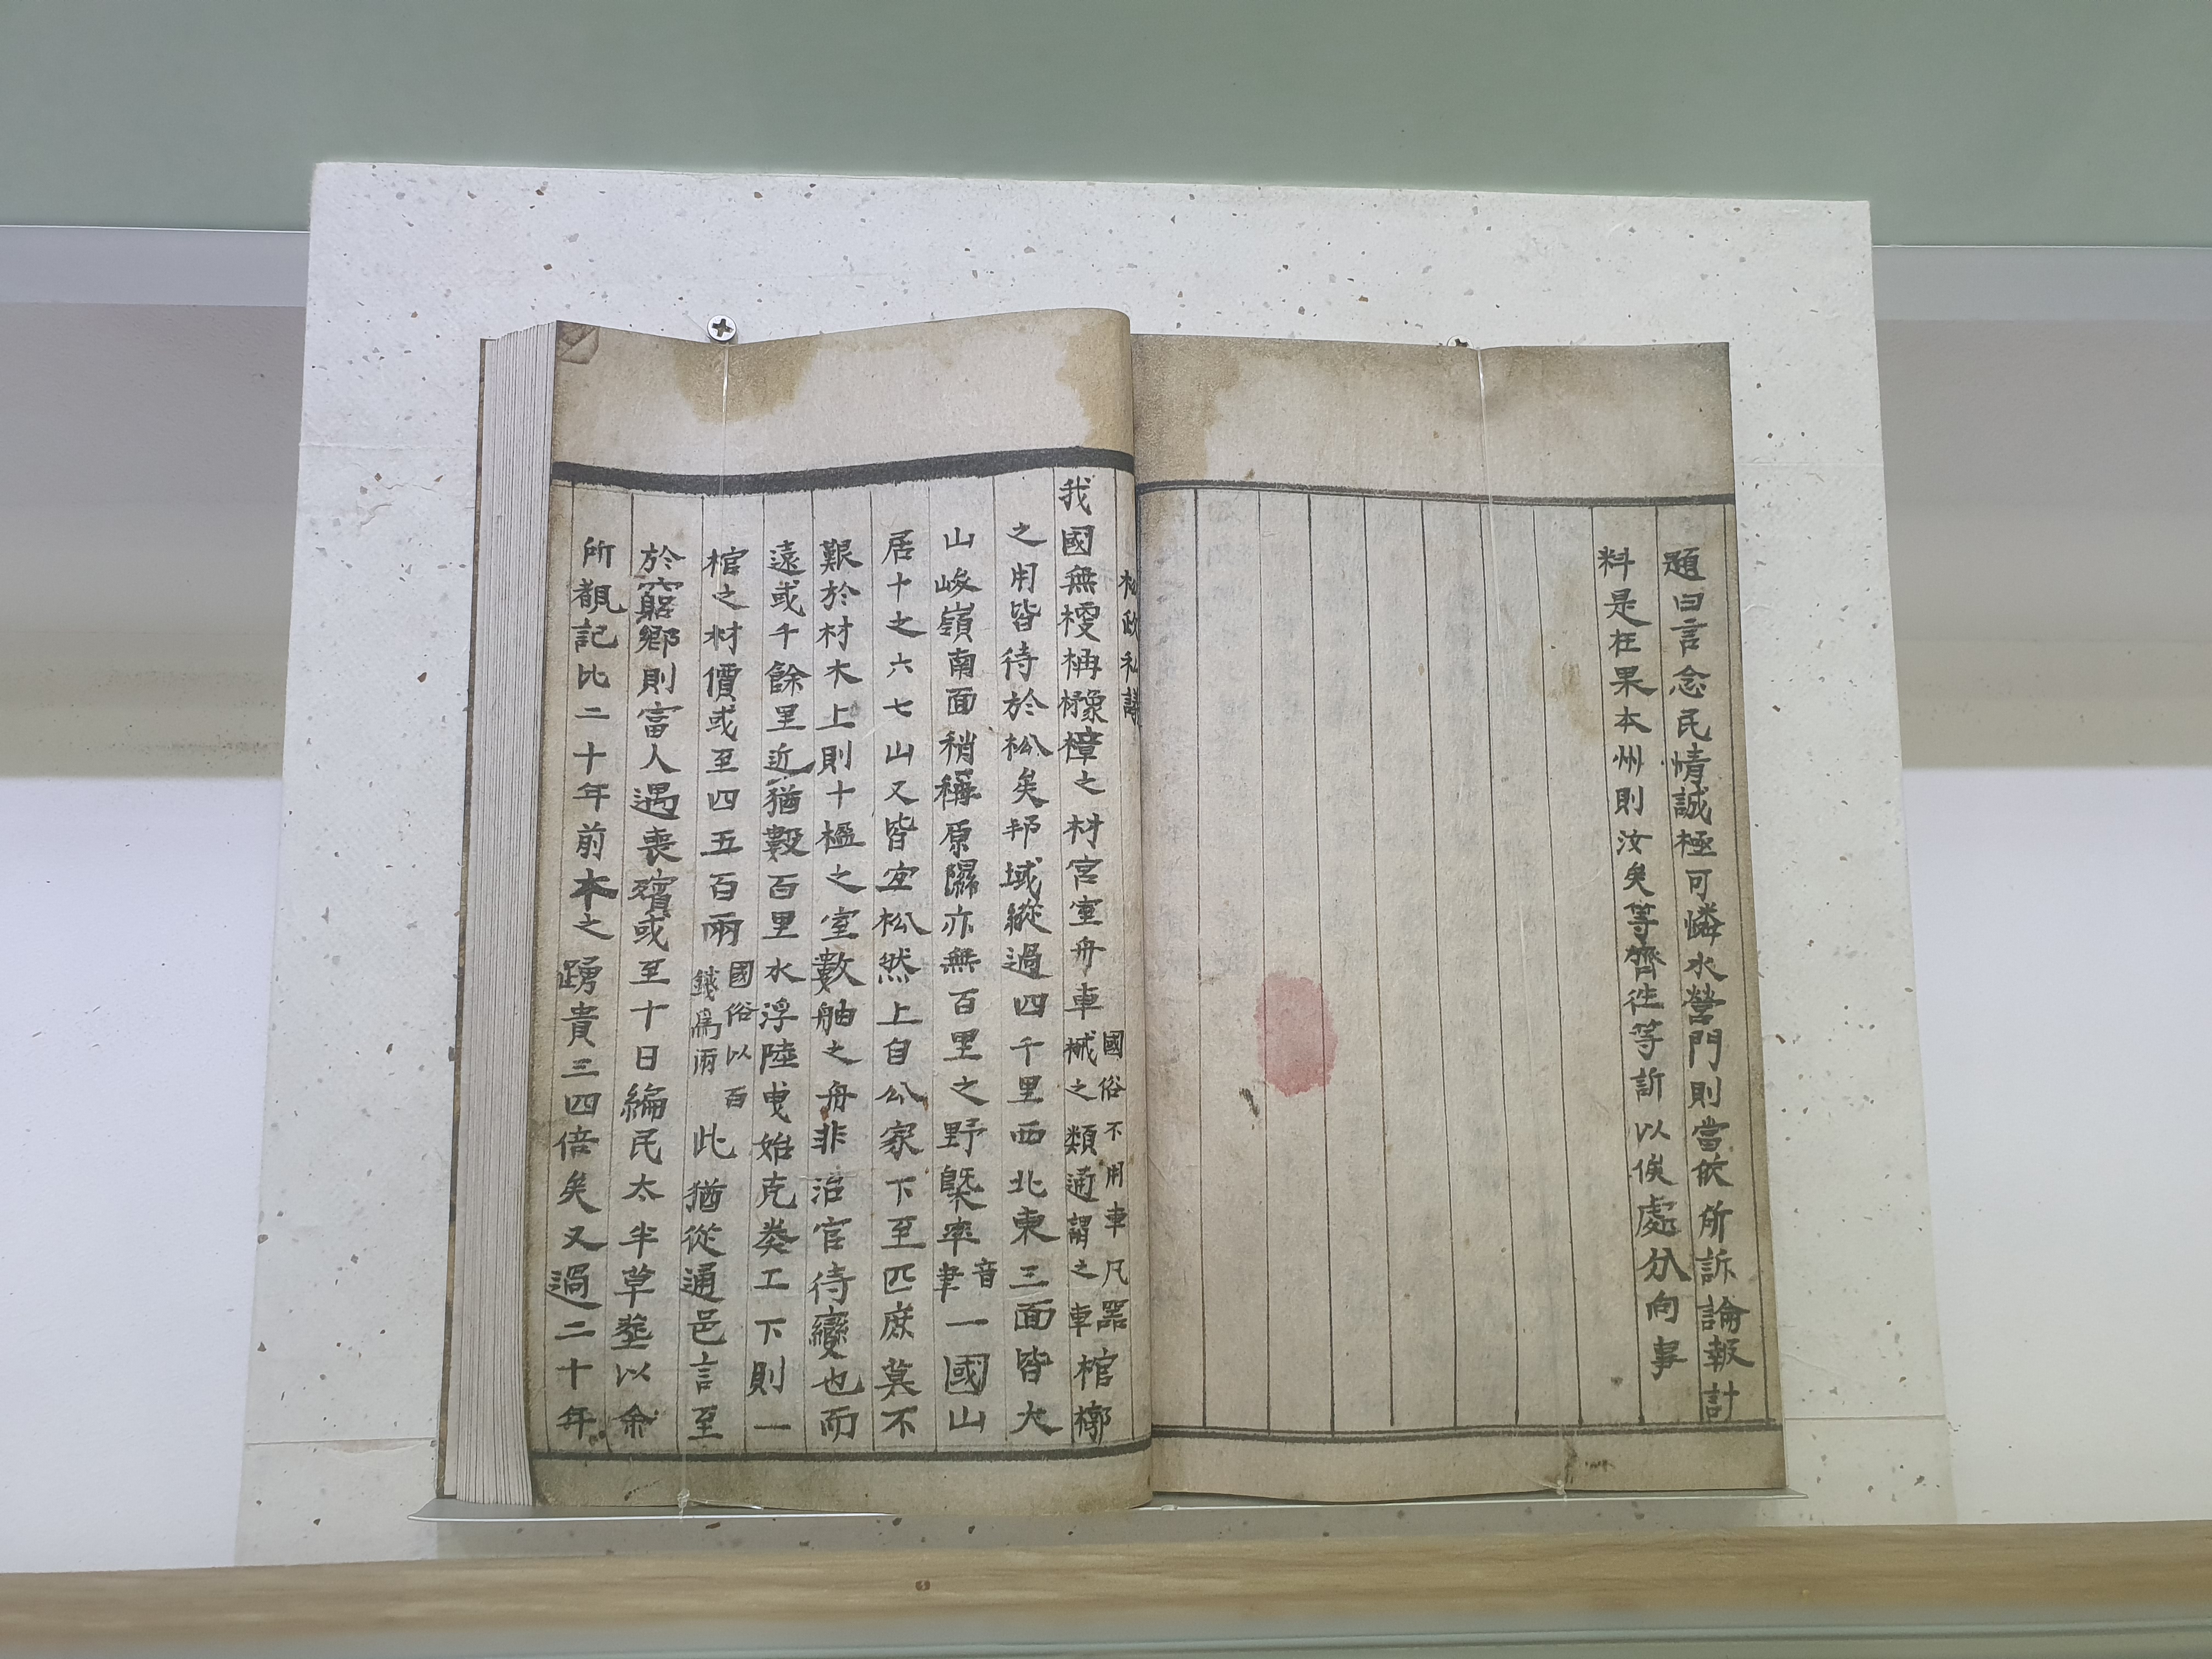 題曰言念民情誠極可憐水營門則當依所訴論報計
料是在果本州則汝矣等齊徃等訴以俟處分向事
松政私議
我國無楩枏櫲樟之材宮室舟車國俗不用車凡器械之類通謂之車棺槨
之用皆待於松矣邦域縱過四千里西北東三面皆大
山峻嶺南面稍稱原隰亦無百里之野槩率音聿一國山
居十之六七山又皆宜松然上自公家下至匹庶莫不
艱於材木上則十楹之室數舳之舟非治官待變也而
遠或千餘里近猶數百里水浮陸曳始克奏工下則一
棺之材價或至四五百兩國俗以百錢爲兩此猶從通邑言至
於窮鄕則富人遇喪殯或至十日編民太半草葬以余
所覩記比二十年前本之踴貴三四倍矣又過二十年